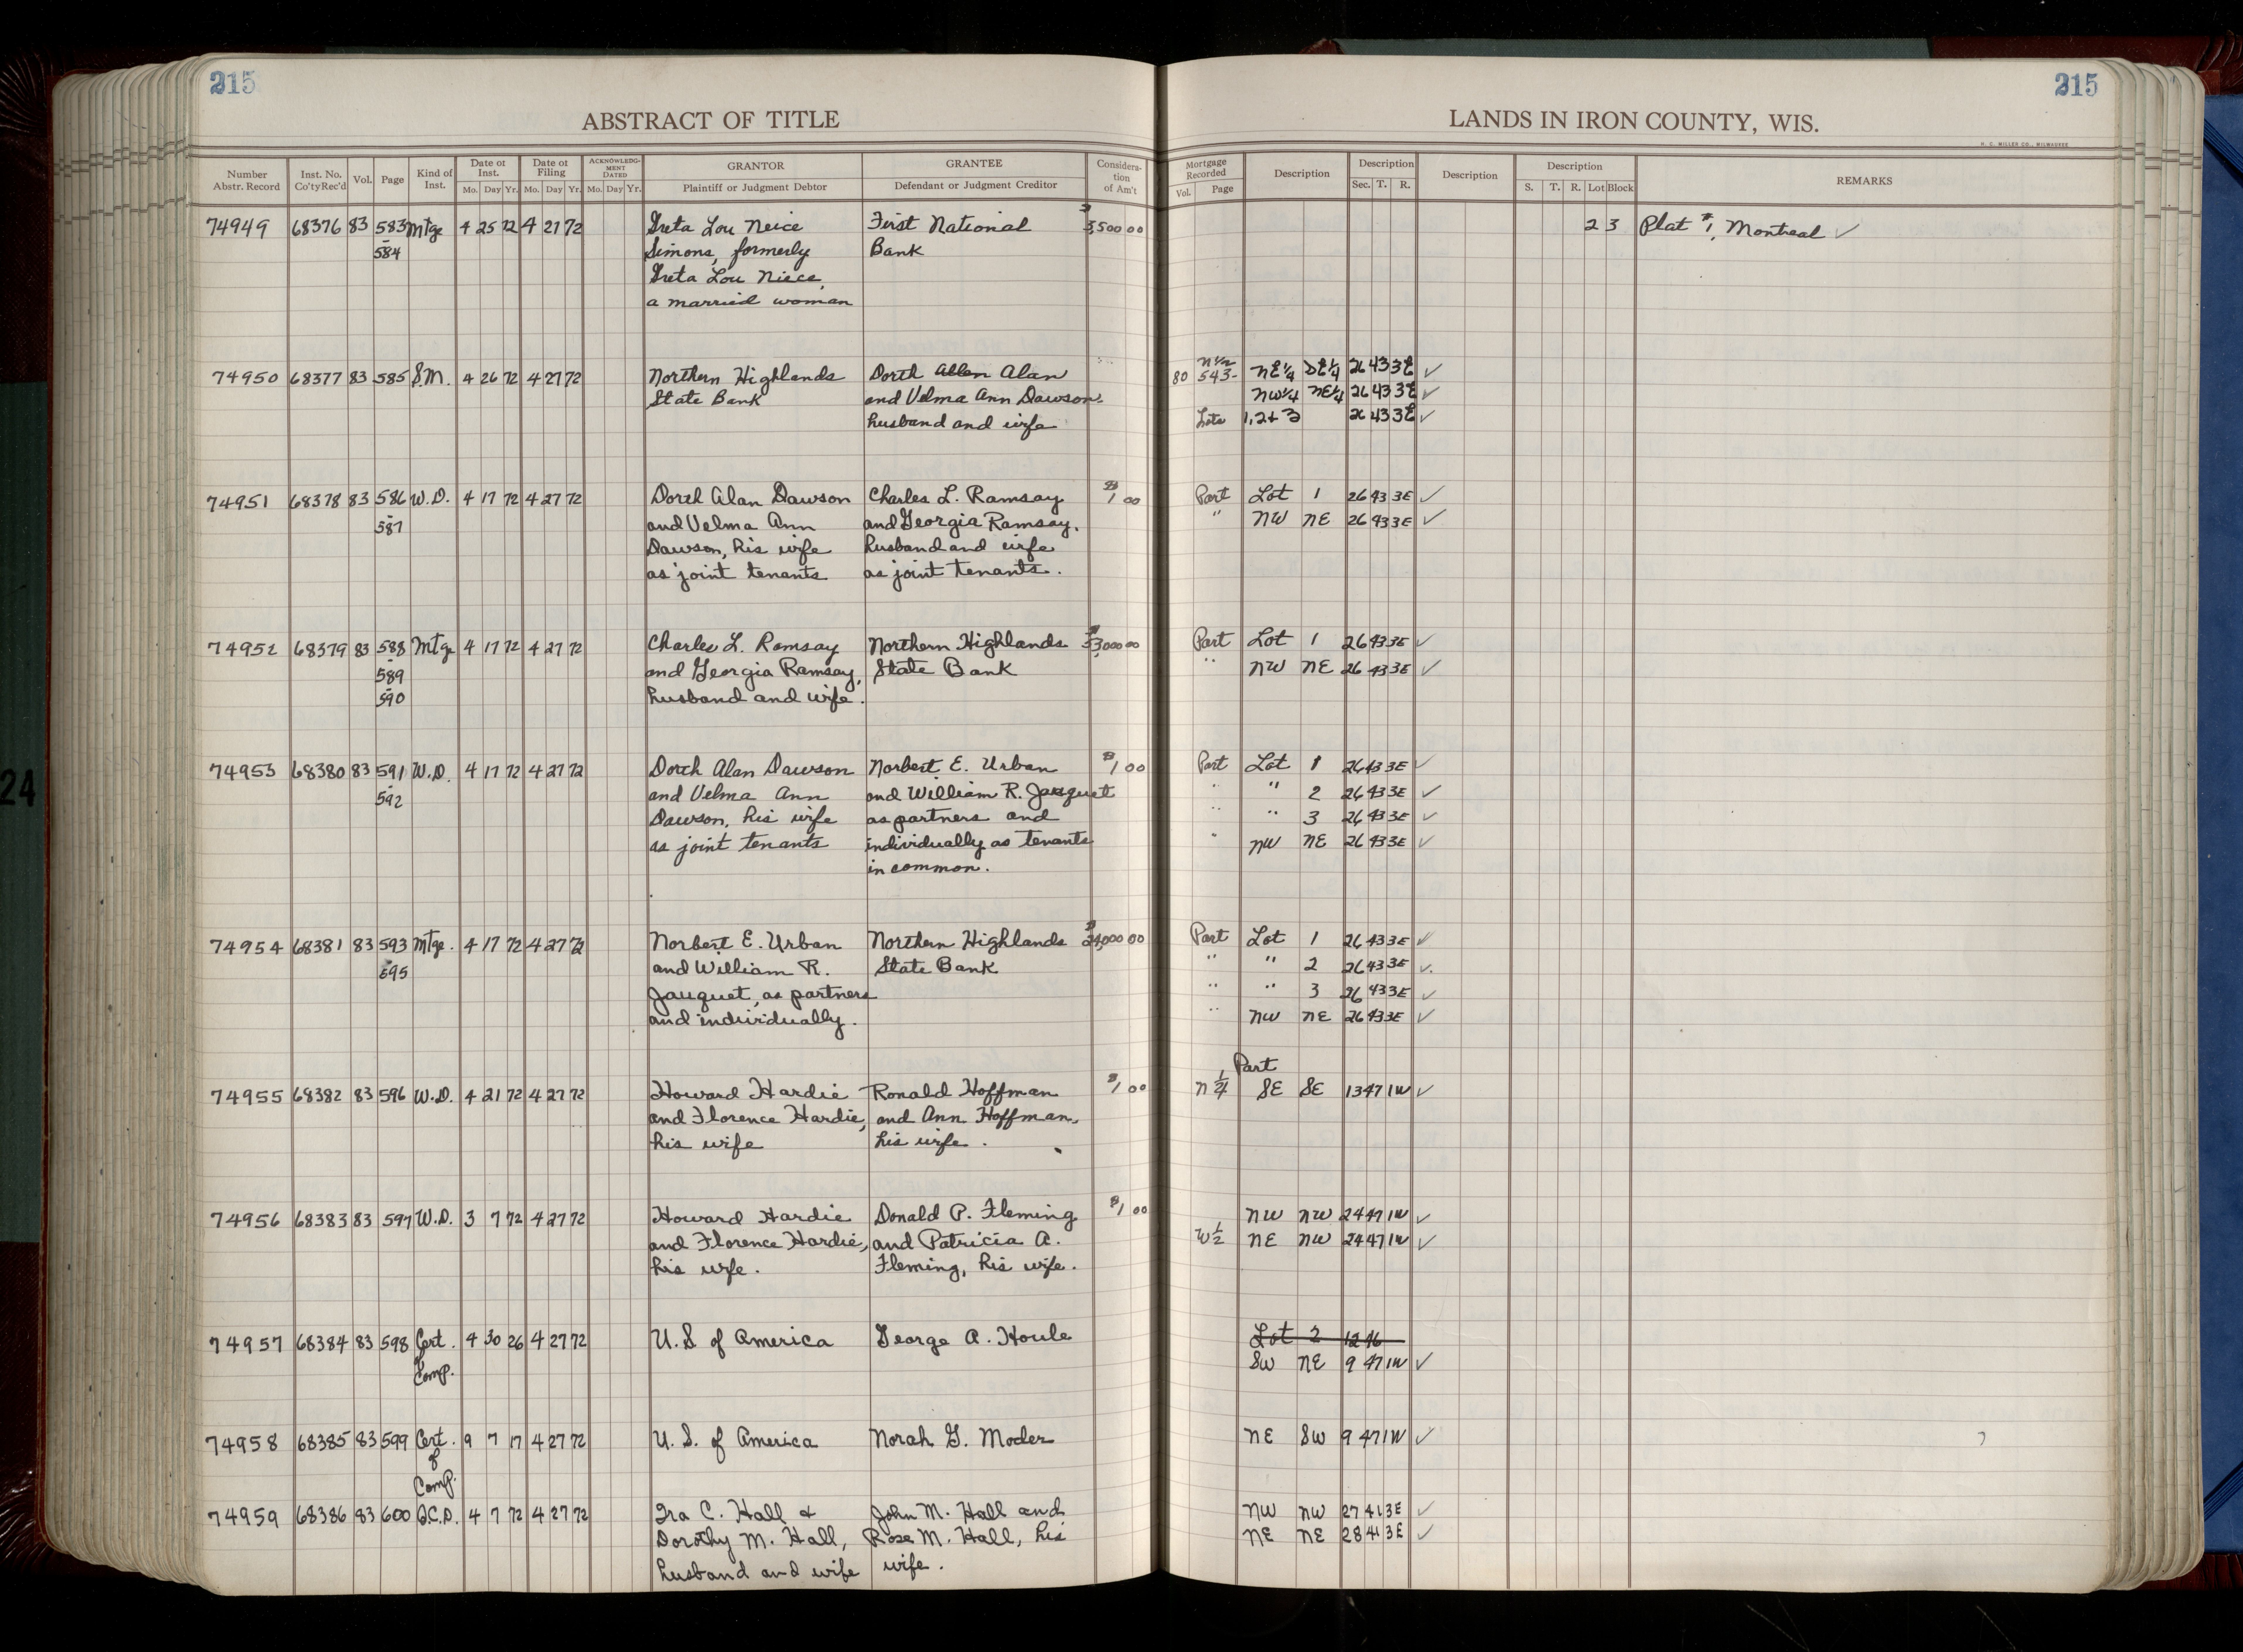 215
215
ABSTRACT OF TITLE
LANDS IN IRON COUNTY, WIS.
H. C. MILLER CO., MILWAUKEE
Number Abstr. Record Inst. No. Co'ty Rec'd Vol. Page Kind of Inst. Date of Inst. Mo. Day Yr. Date of Filing Mo. Day Yr. ACKNOWLEDGMENT DATED Mo. Day Yr. GRANTOR Plaintiff or Judgment Debtor GRANTEE Defendant or Judgment Creditor Consideration of Am't Mortgage Recorded Vol. Page Description Description Sec. T. R. Description Description S. T. R. Lot Block REMARKS
74949 68376 83 583 Mtge 4 25 72 4 27 72 Greta Lou Neice First National $3,500 00 2 3 Plat #1, Montreal ✓
584 Simons, formerly Bank
Greta Lou Niece,
a married woman
N 1/2
74950 68377 83 585 S.M. 4 26 72 4 27 72 Northern Highlands Doreh Allen Alan 80 543- NE1/4 SE1/4 26 43 3E ✓
State Bank and Velma Ann Dawson, NW1/4 NE1/4 26 43 3E ✓
husband and wife Lots 1, 2 + 3 26 43 3E ✓
74951 68378 83 586 W.D. 4 17 72 4 27 72 Doreh Alan Dawson Charles L. Ramsay $1 00 Part Lot 1 26 43 3E ✓
587 and Velma Ann and Georgia Ramsay, " NW NE 26 43 3E ✓
Dawson, his wife husband and wife
as joint tenants as joint tenants.
74952 68379 83 588 Mtge 4 17 72 4 27 72 Charles L. Ramsay Northern Highlands $3,000 00 Part Lot 1 26 43 3E ✓
589 and Georgia Ramsay, State Bank " NW NE 26 43 3E ✓
590 husband and wife.
74953 68380 83 591 W.D. 4 17 72 4 27 72 Doreh Alan Dawson Norbert E. Urban $1 00 Part Lot 1 26 43 3E ✓
592 and Velma Ann and William R. Jauquet " " 2 26 43 3E ✓
Dawson, his wife as partners and " " 3 26 43 3E ✓
as joint tenants individually as tenants " NW NE 26 43 3E ✓
in common.
74954 68381 83 593 Mtge. 4 17 72 4 27 72 Norbert E. Urban Northern Highlands $24,000 00 Part Lot 1 26 43 3E ✓
595 and William R. State Bank " " 2 26 43 3E ✓
Jauquet, as partners " " 3 26 43 3E ✓
and individually. " NW NE 26 43 3E ✓
Part
74955 68382 83 596 W.D. 4 21 72 4 27 72 Howard Hardie Ronald Hoffman $1 00 N SE SE 13 47 1W ✓
and Florence Hardie, and Ann Hoffman,
his wife his wife.
74956 68383 83 597 W.D. 3 7 72 4 27 72 Howard Hardie Donald P. Fleming $1 00 NW NW 24 47 1W ✓
and Florence Hardie, and Patricia A. W 1/2 NE NW 24 47 1W ✓
his wife. Fleming, his wife.
74957 68384 83 598 Cert. 4 30 26 4 27 72 U.S of America George A. Houle Lot 2 12 46
of SW NE 9 47 1W ✓
Comp.
74958 68385 83 599 Cert. 9 7 17 4 27 72 U. S. of America Norah G. Moder NE SW 9 47 1W ✓
of
Comp.
74959 68386 83 600 Q.C.D. 4 7 72 4 27 72 Ira C. Hall & John M. Hall and NW NW 27 41 3E ✓
Dorothy M. Hall, Rose M. Hall, his NE NE 28 41 3E ✓
husband and wife wife.
24